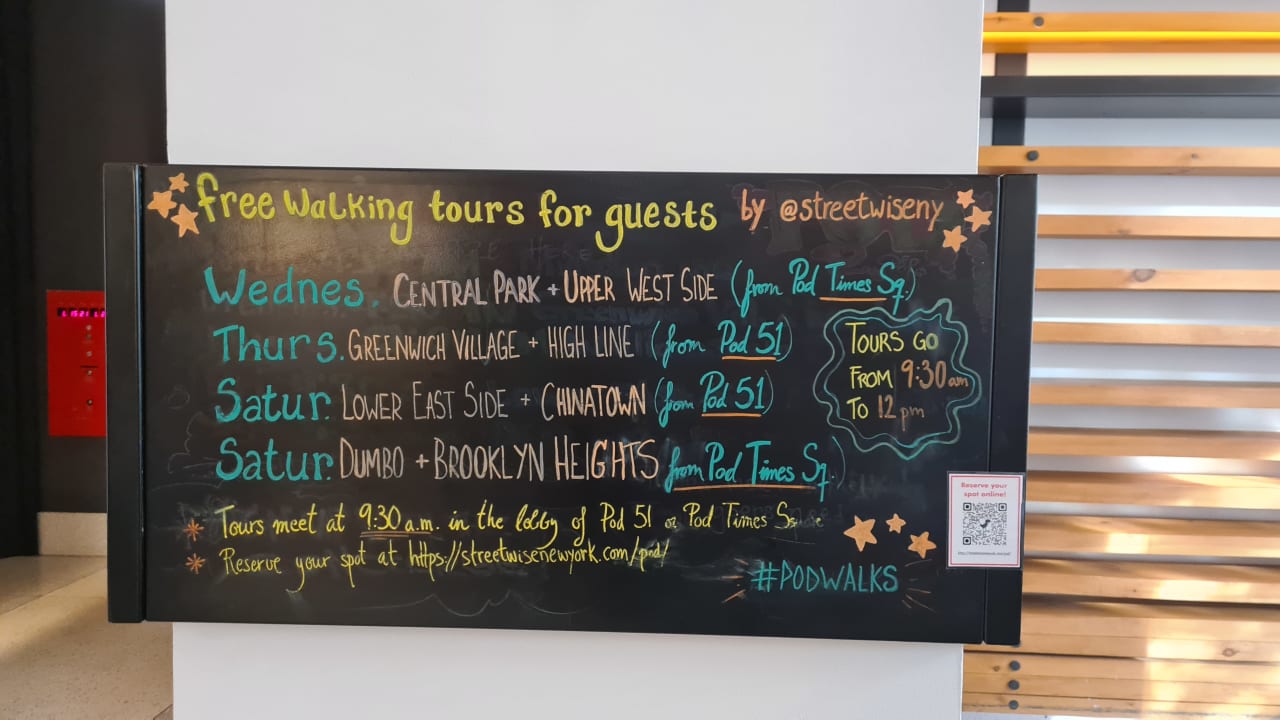 free walking tours for guests by @streetwiseny
Wednes. CENTRAL PARK + UPPER WEST SIDE (from Pod Times Sq.)
Thurs. GREENWICH VILLAGE + HIGH LINE (from Pod 51)
Satur. LOWER EAST SIDE + CHINATOWN (from Pod 51)
Satur. DUMBO + BROOKLYN HEIGHTS from Pod Times Sq.)
TOURS GO
FROM 9:30 am
TO 12 pm
* Tours meet at 9:30 a.m. in the lobby of Pod 51 or Pod Times
* Reserve your spot at https://streetwisenewyork.com/pod/
#PODWALKS
Reserve your
spot online!